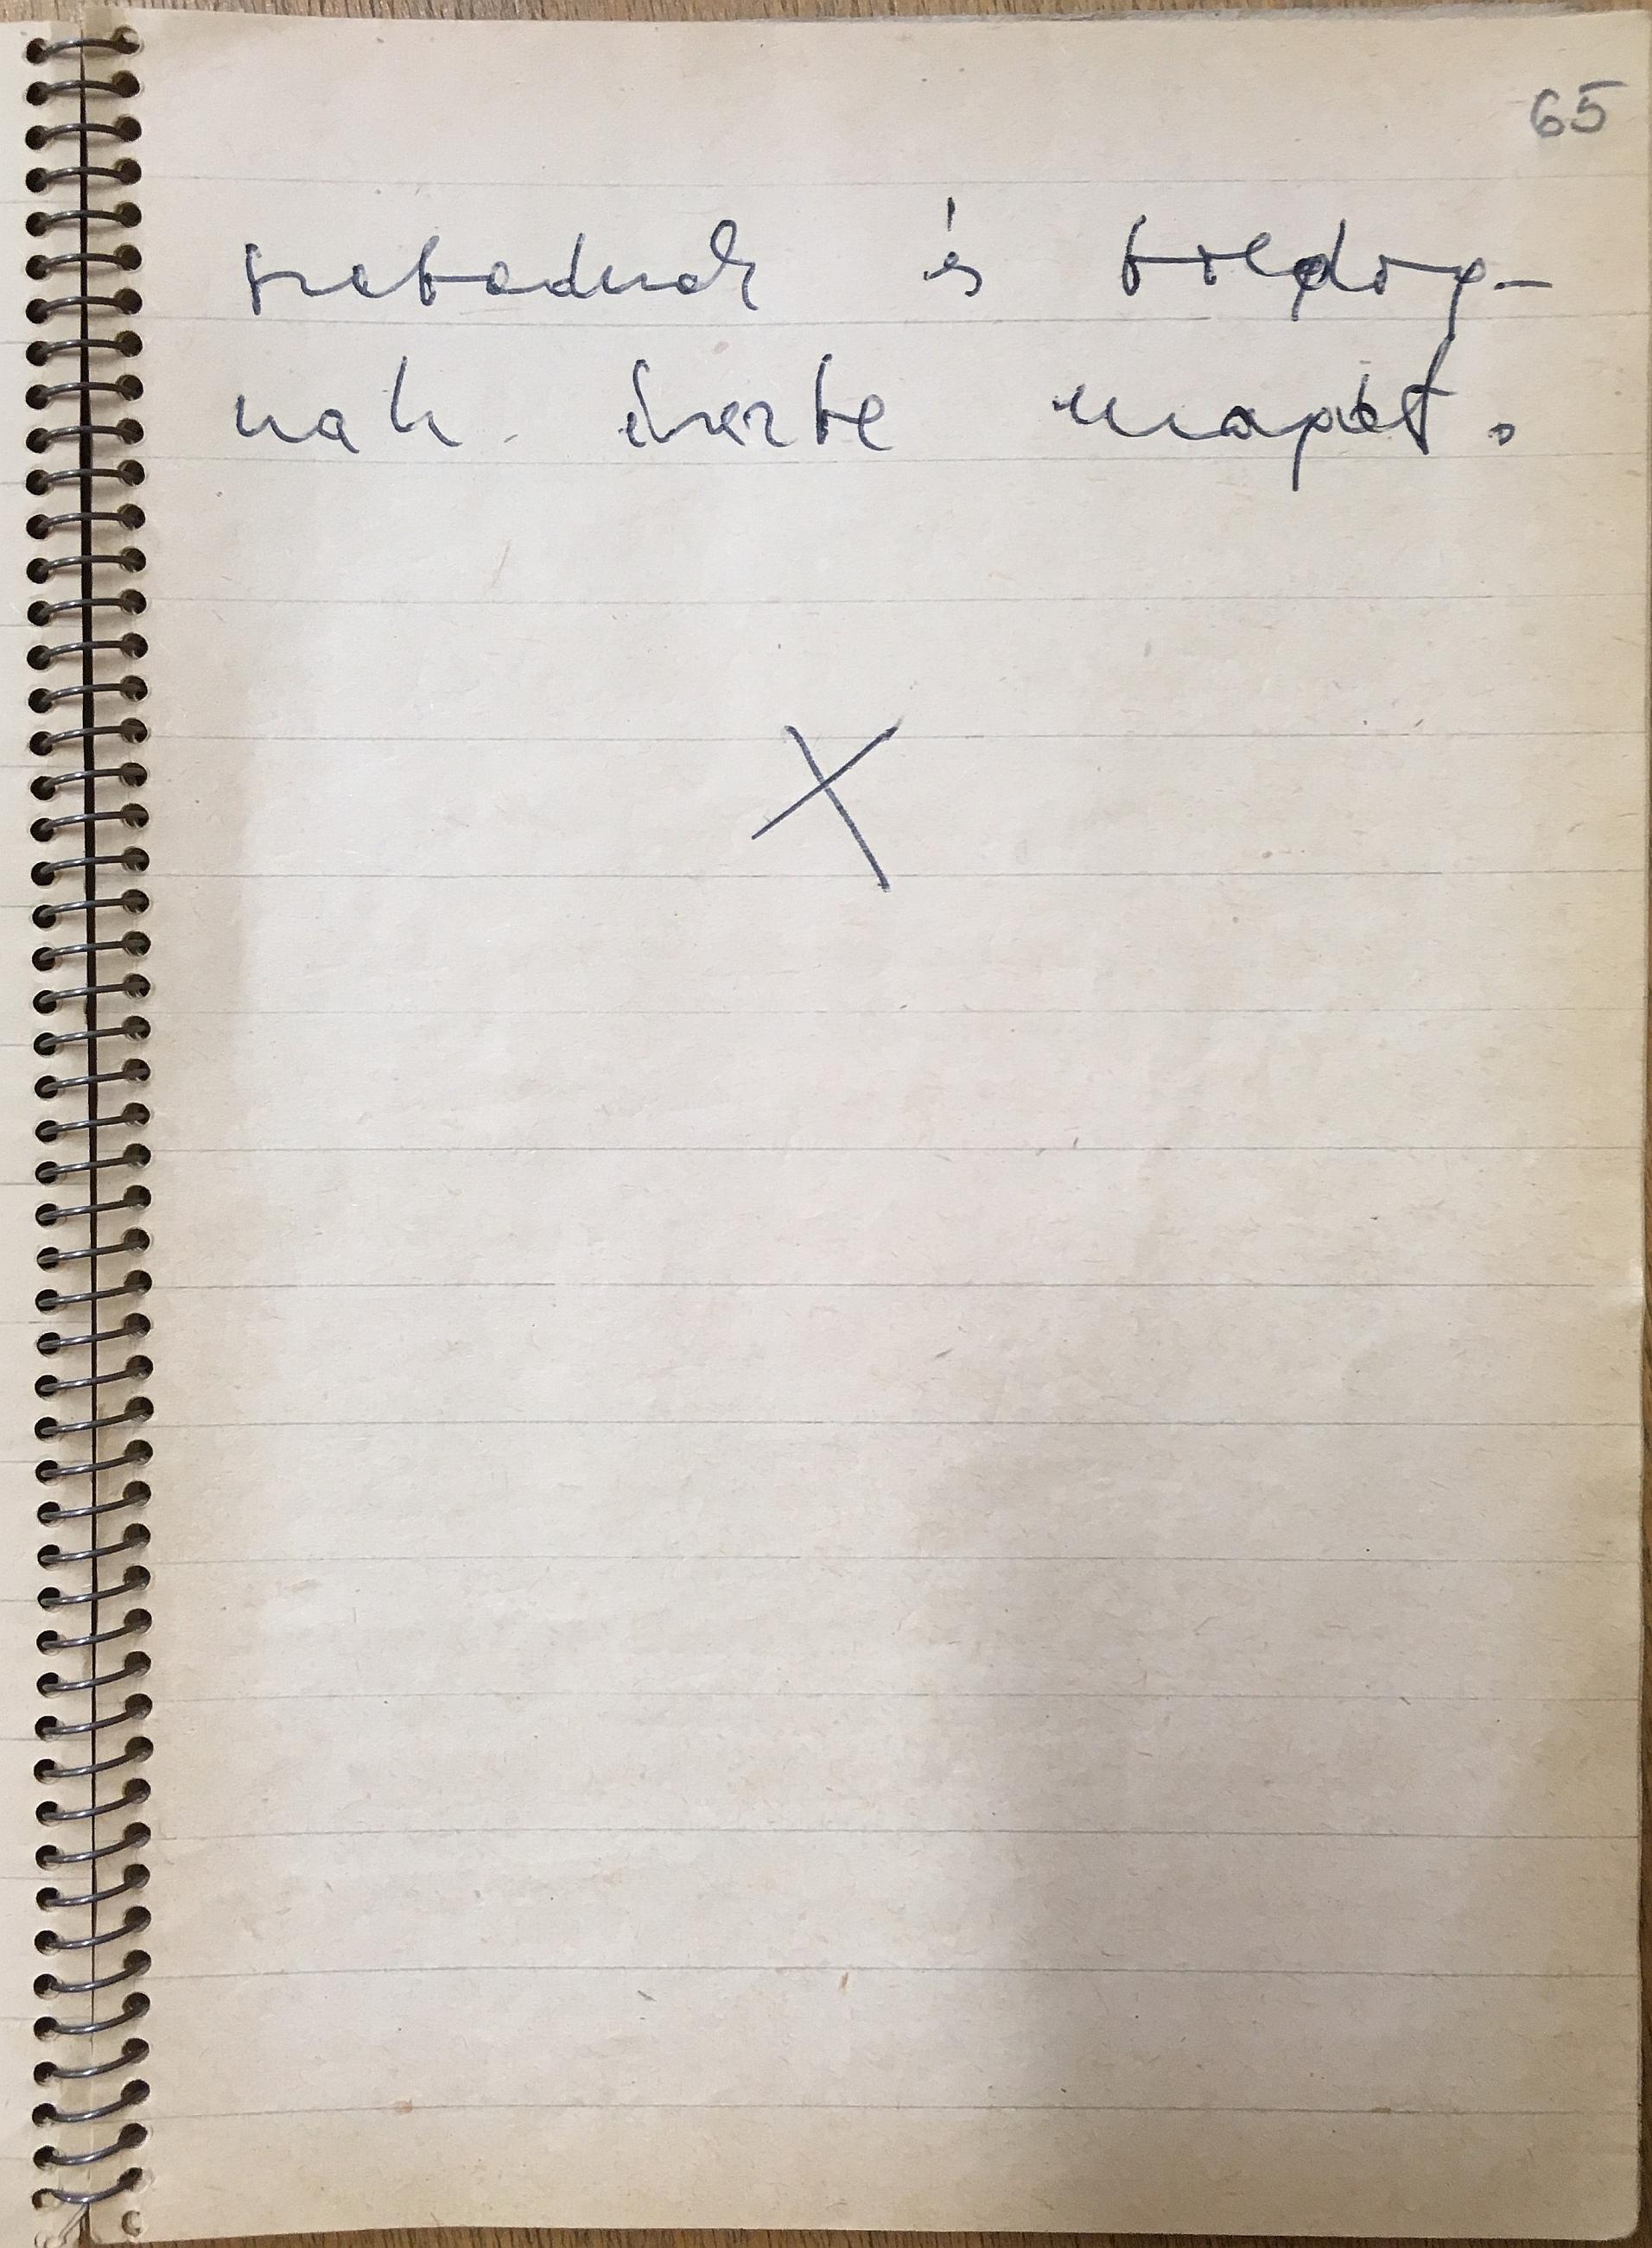 65
szabadnak és boldog-
nak érezte magát.
X